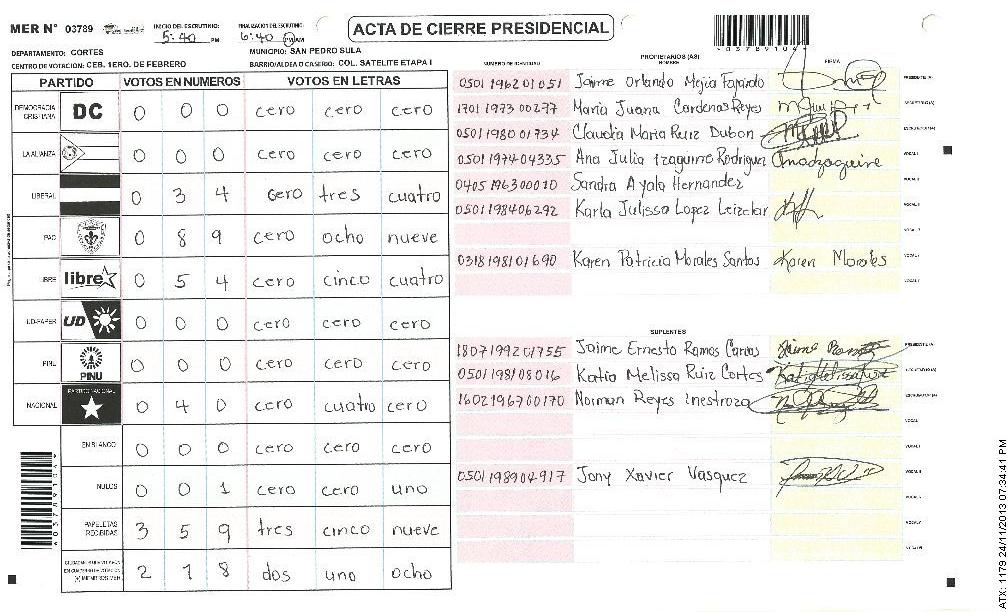 MER N° 03789
INICIO DEL ESCRUTINIO: 5:40 PM
FINALIZACION DEL ESCRUTINIO: 6:40 PM AM
ACTA DE CIERRE PRESIDENCIAL
DEPARTAMENTO: CORTES
MUNICIPIO: SAN PEDRO SULA
CENTRO DE VOTACIÓN: CEB. 1ERO. DE FEBRERO
BARRIO/ALDEA O CASERIO: COL. SATELITE ETAPA I
PARTIDO VOTOS EN NUMEROS VOTOS EN LETRAS
DEMOCRACIA CRISTIANA DC 0 0 0 cero cero cero
LA ALIANZA 0 0 0 cero cero cero
LIBERAL 0 3 4 cero tres cuatro
PAC 0 8 9 cero ocho nueve
LIBRE libre 0 5 4 cero cinco cuatro
UD-FAPER UD 0 0 0 cero cero cero
PINU PINU 0 0 0 cero cero cero
NACIONAL PARTIDO NACIONAL 0 4 0 cero cuatro cero
EN BLANCO 0 0 0 cero cero cero
NULOS 0 0 1 cero cero uno
PAPELETAS RECIBIDAS 3 5 9 tres cinco nueve
2 1 8 dos uno ocho
NUMERO DE IDENTIDAD PROPIETARIOS (AS) NOMBRE FIRMA
0501196201051 Jaime Orlando Mejia Fajardo PRESIDENTE (A)
1701197300277 Maria Juana Cardenas Reyes SECRETARIO (A)
0501198001734 Claudia Maria Ruiz Dubon ESCRUTADOR (A)
0501197404335 Ana Julia Izaguirre Rodriguez Anadzaguirre VOCAL I
0405196300010 Sandra Ayala Hernandez
0501198406292 Karla Julissa Lopez Leizelar
0318198101690 Karen Patricia Morales Santos Karen Morales
SUPLENTES
1807199201755 Jaime Ernesto Ramos Carias PRESIDENTE (A)
0501198108016 Katia Melissa Ruiz Cortes SECRETARIO (A)
1602196700170 Norman Reyes Inestroza ESCRUTADOR (A)
0501198904917 Jony Xavier Vasquez
4037891044
ATX: 1179 24/11/2013 07:34:41 PM